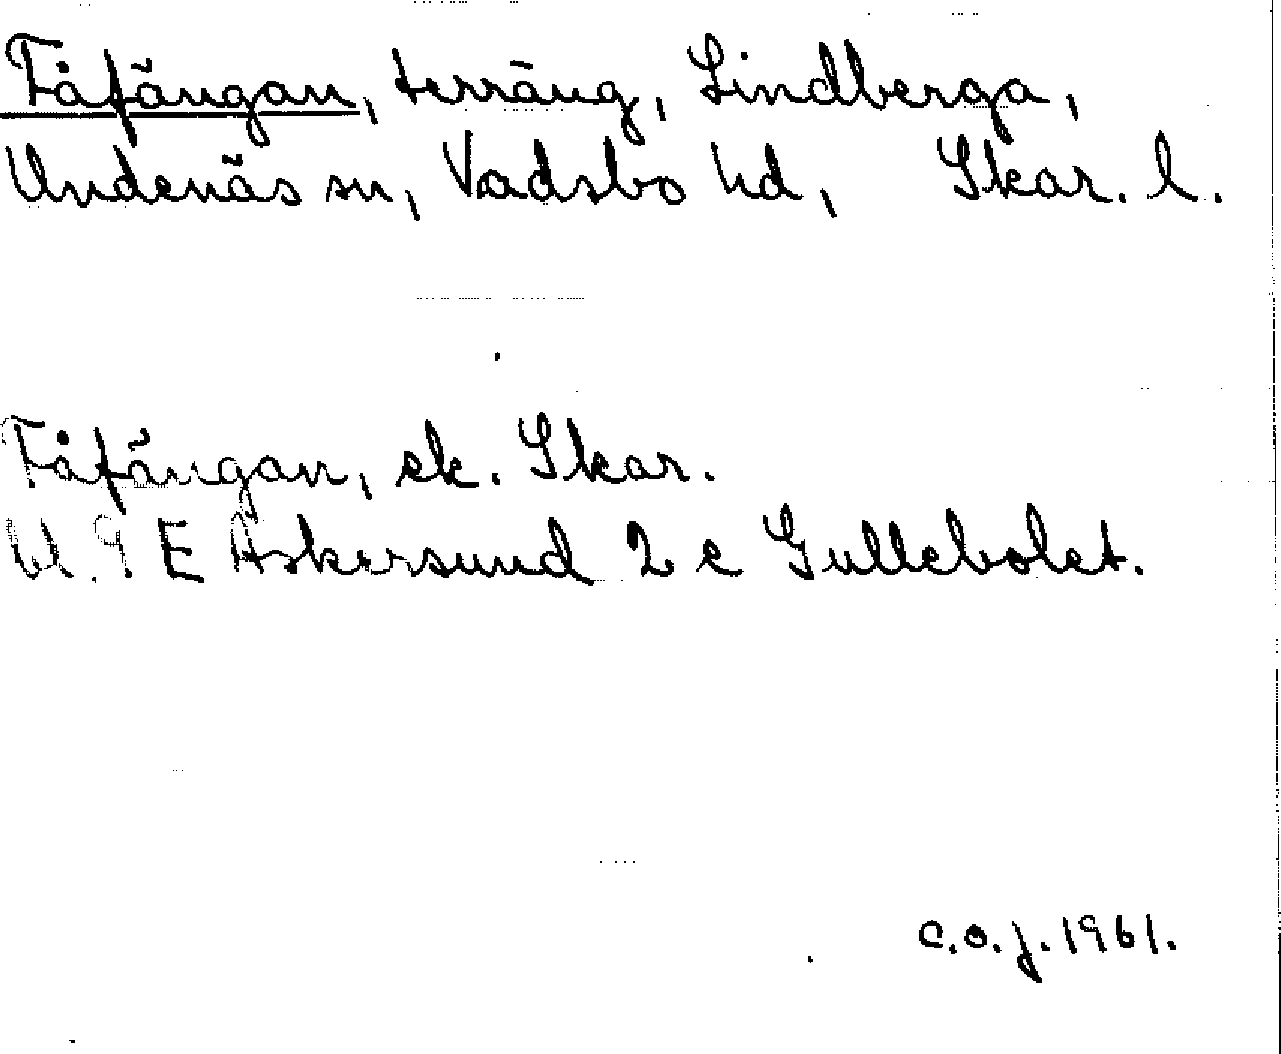 Fåfängan, terräng, Lindberga,
Undenäs sn, Vadsbo hd, Skar. l.
Fåfängan, ek. Skar.
Bl. 9 E Askersund 2 c Gullebolet.
C.O.J. 1961.